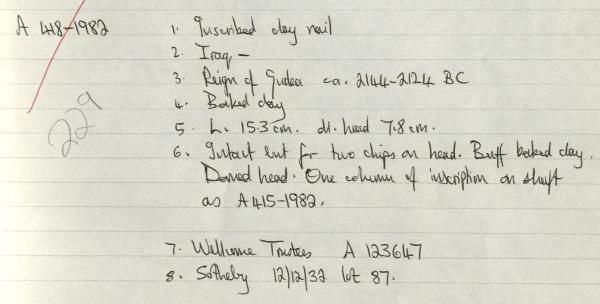 A 418-1982
1. Inscribed clay nail
2. Iraq -
3. Reign of Gudea ca. 2144-2124 BC
4. Baked clay
5. L. 15.3 cm. di. head 7.8 cm.
6. Intact but for two chips on head. Buff baked clay.
Domed head. One column of inscription on shaft
as A415-1982.
229
7. Wellcome Trustees A 123647
8. Sotheby 12/12/32 lot 87.